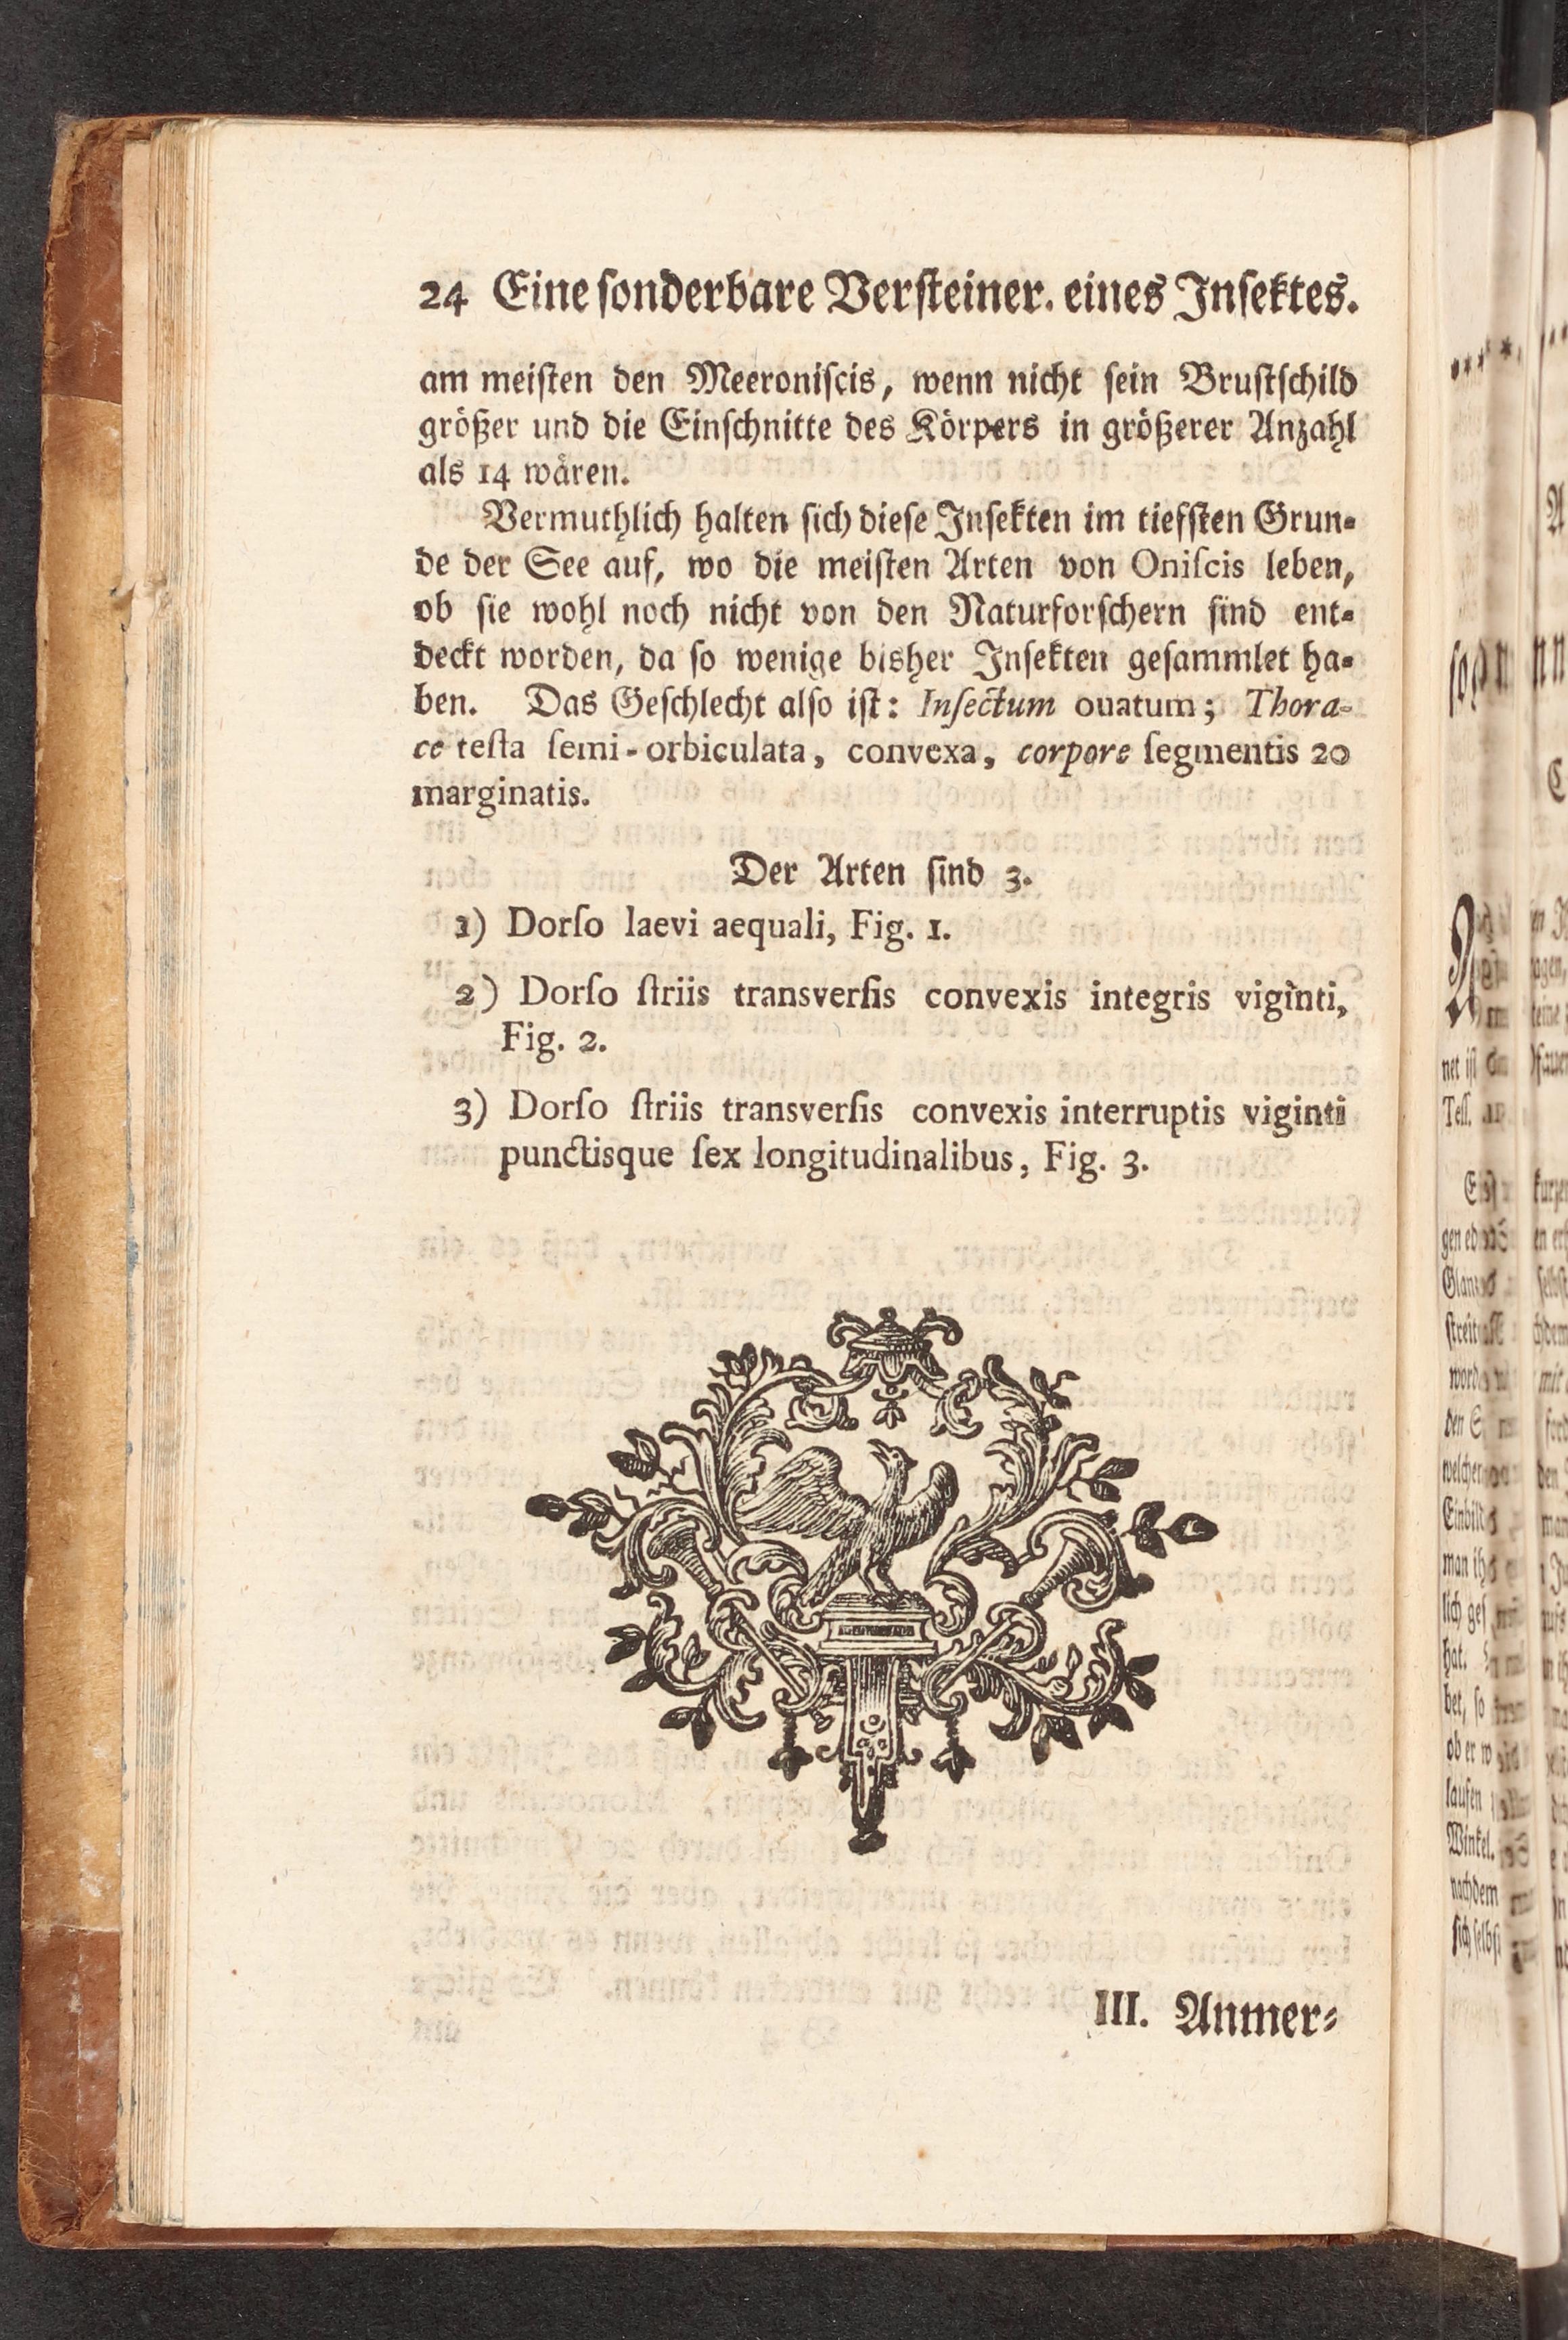 24 Eine ſonderbare Verſteiner. eines Inſektes.
am meiſten den Meeroniſcis, wenn nicht ſein Bruſtſchild
größer und die Einſchnitte des Körpers in größerer Anzahl
als 14 wären.
Vermuthlich halten ſich dieſe Inſekten im tiefſten Grun-
de der See auf, wo die meiſten Arten von Oniſcis leben,
ob ſie wohl noch nicht von den Naturforſchern ſind ent-
deckt worden, da ſo wenige bisher Inſekten geſammlet ha-
ben. Das Geſchlecht alſo iſt: Inſectum ouatum; Thora-
ce teſta ſemi-orbiculata, convexa, corpore ſegmentis 20
marginatis.
Der Arten ſind 3.
1) Dorſo laevi aequali, Fig. 1.
2) Dorſo ſtriis transverſis convexis integris viginti,
Fig. 2.
3) Dorſo ſtriis transverſis convexis interruptis viginti
punctisque ſex longitudinalibus, Fig. 3.
III. Anmer-